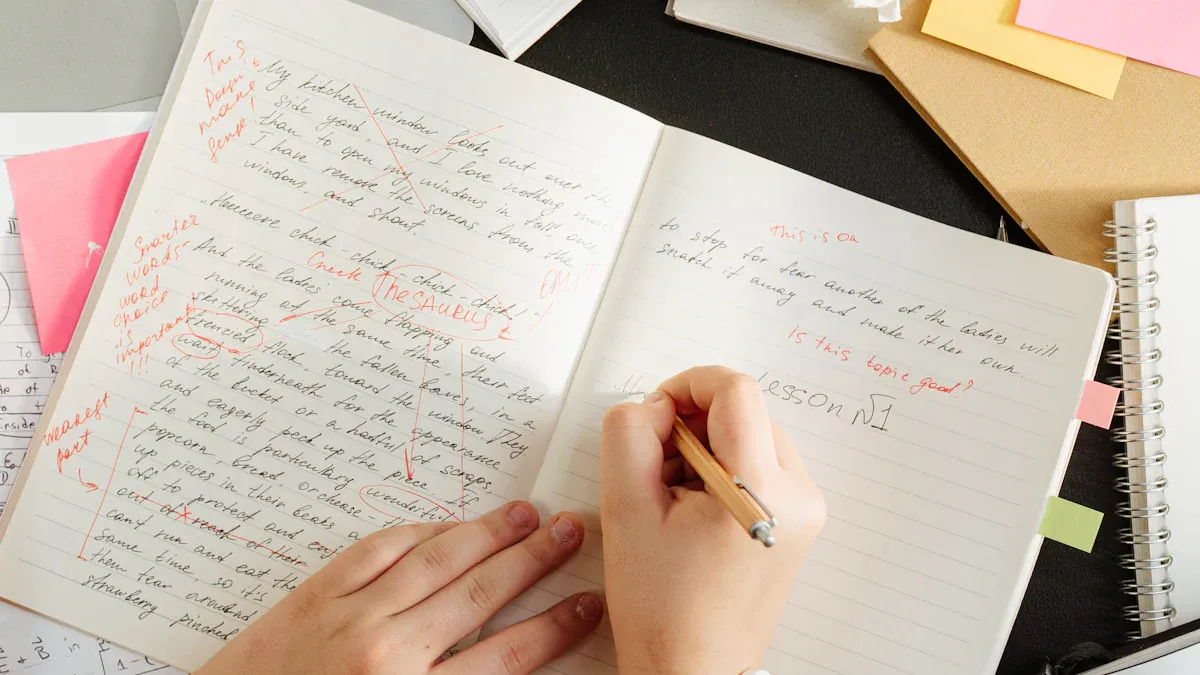 This
Doesn
make
sense!
My kitchen window looks out over the
side yard, and I love nothing more
than to open my windows in fall, once
I have remove the screens from the
windows, and shout.
chick-chick-chick-chick!
Check
Thesaurus
OMG!
Smarter
words-
word
choice
is
important
!!!
And the ladies come flapping and
running at the same time, their feet
skittering the fallen leaves, in a
frenzied flock, toward the window. They
wait underneath for the appearance
of the bucket or a hadful of scraps
and eagerly peck up the piece. If
the food is particulary wonderful
popcorn, bread, or cheese
up pieces in their beaks a
off to protect and enj
out of reach of their
can't run and eat the
same time, so it's
them tear around
strawberry pinched
weakest
part
This is OK
to stop for fear another of the ladies will
snatch it away and make it her own.
is this topic good?
Lesson №1